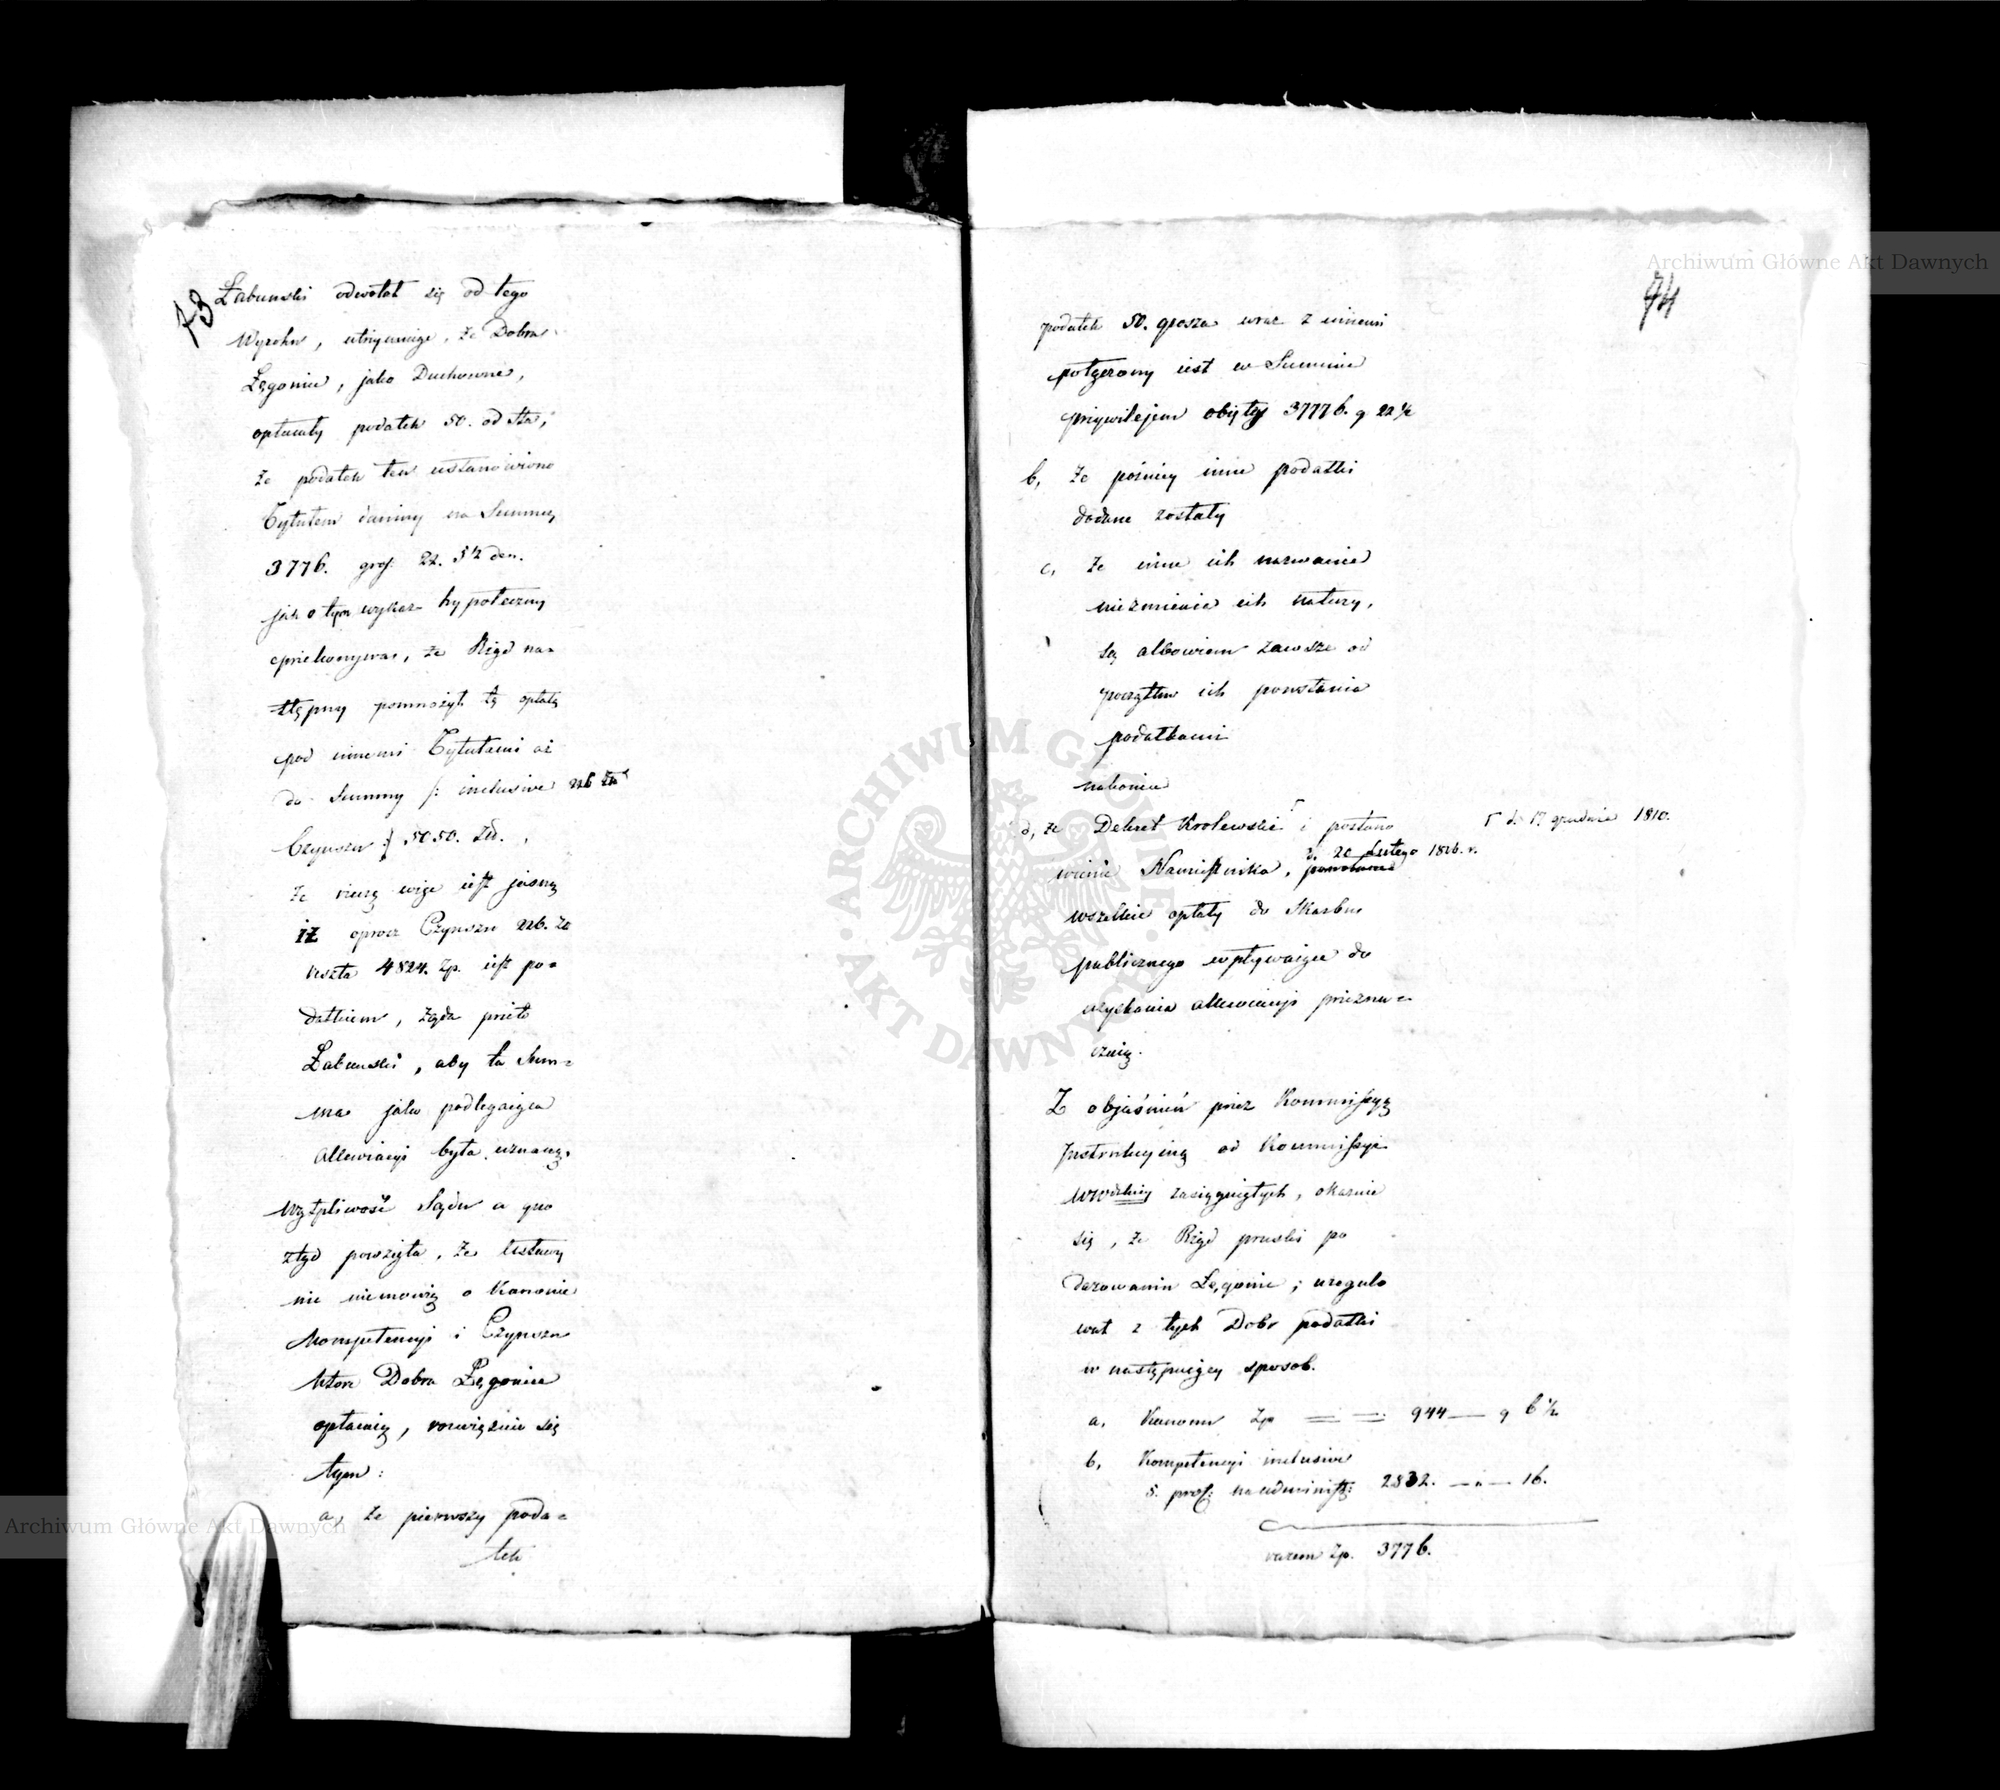 73
Łabunski odwołał się od tego
Wyroku, utrzymuiąc, że Dobra
Łęgonice, jako Duchowne,
opłacały podatek 50. od sta,
że podatek ten ustanowiono
Tytułem daniny na Summę
3776. gro. 22. 5½ den.
jak o tym wykaz hypoteczny
przekonywa, że Rząd na=
stępny pomnożył tę opłatę
pod innemi Tytułami aż
do Summy /: inclusive 226 Zł
Czynszu :/ 5050. Zł.
że rzeczą więc iest jasną
iż oprocz Czynszu 226. Zł
reszta 4824. Zp. iest po=
datkiem, żąda przeto
Łabunski, aby ta Sum=
ma jako podlegaiąca
Allewiacyi była uznaną.
Wątpliwość Sądu a quo
ztąd powzięta, że Ustawy
nic niemowią o Kanonie
Kompetencyi i Czynszu
które Dobra Łęgonice
opłacaią, rozwiązuie się
tym:
a, że pierwszy poda=
tek
74
podatek 50. grosza wraz z innemi
połączony iest w Summie
przywilejem obiętej 3776. g 22½
b, że pozniey inne podatki
dodane zostały
c, że inne ich nazwanie
niezmienia ich natury,
są albowiem zawsze od
początku ich powstania
podatkami
nakoniec
d, że Dekret Krolewski Γ i postano
Γ d. 17 grudnia 1810.
wienie Namiestnika, d. 20 Lutego 1816. r.
wszelkie opłaty do Skarbu
publicznego wpływaiące do
uzyskania allewiacyi przezna=
czaią.
Z objaśnień przez Kommissyą
Instrukcyiną od Kommissyi
Wwdzkiey zasięgniętych, okazuie
się, że Rząd pruski po
darowaniu Łęgonic, uregulo
wał z tych Dobr podatki
w następuiący sposob.
a, Kanonu Zp = = 944 — g 6½
b, Kompetencyi inclusive
5. pro. na administ: 2832. — „ — 16.
razem Zp. 3776.
Archiwum Główne Akt Dawnych
Archiwum Główne Akt Dawnych
ARCHIWUM GŁÓWNE · AKT DAWNYCH ·